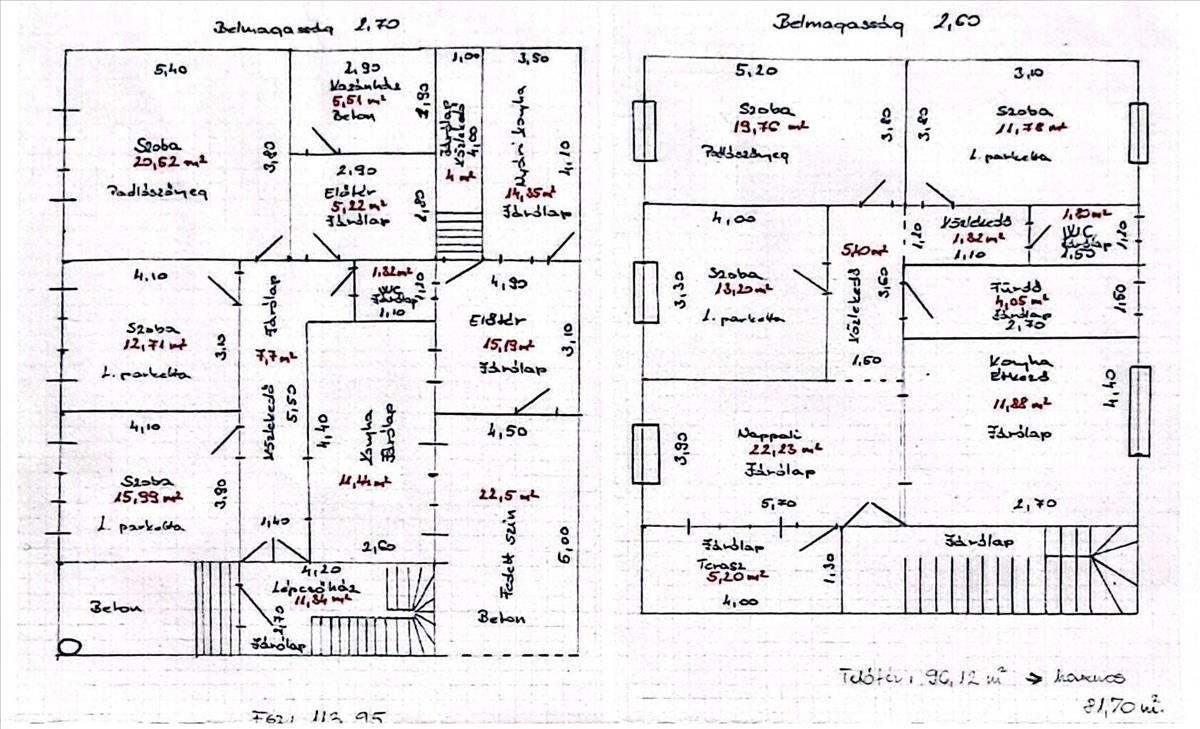 Belmagasság 2,70
5,40
Szoba
20,52 m²
Padlószőnyeg
3,80
2,90
Kazánház
5,51 m²
Beton
2,90
Előtér
5,22 m²
Járólap
1,80
1,00
Járólap
Közlekedő
4,00
4 m²
3,50
Nyári konyha
4,10
14,35 m²
Járólap
4,10
Szoba
12,71 m²
L. parketta
3,10
Járólap
7,7 m²
Közlekedő
5,50
1,40
1,32 m²
WC
Járólap
1,10
1,20
4,40
Konyha
Járólap
11,44 m²
2,60
4,90
Előtér
15,19 m²
Járólap
3,10
4,10
Szoba
15,99 m²
L. parketta
3,90
4,50
22,5 m²
Fedett szín
5,00
Beton
Beton
4,20
Lépcsőház
11,34 m²
2,70
Járólap
113,95
Belmagasság 2,60
5,20
Szoba
19,76 m²
Padlószőnyeg
3,80
3,10
Szoba
11,78 m²
L. parketta
3,80
4,00
Szoba
13,20 m²
L. parketta
3,30
5,40 m²
Közlekedő
3,60
1,50
Közlekedő
1,32 m²
1,10
1,20
1,80 m²
WC
Járólap
1,50
1,20
Fürdő
4,05 m²
Járólap
2,70
1,50
Konyha
Étkező
11,88 m²
Járólap
4,40
2,70
Nappali
22,23 m²
Járólap
3,90
5,70
Járólap
Terasz
5,20 m²
4,00
1,30
Járólap
Tetőtér: 96,12 m² → hasznos
81,70 m².